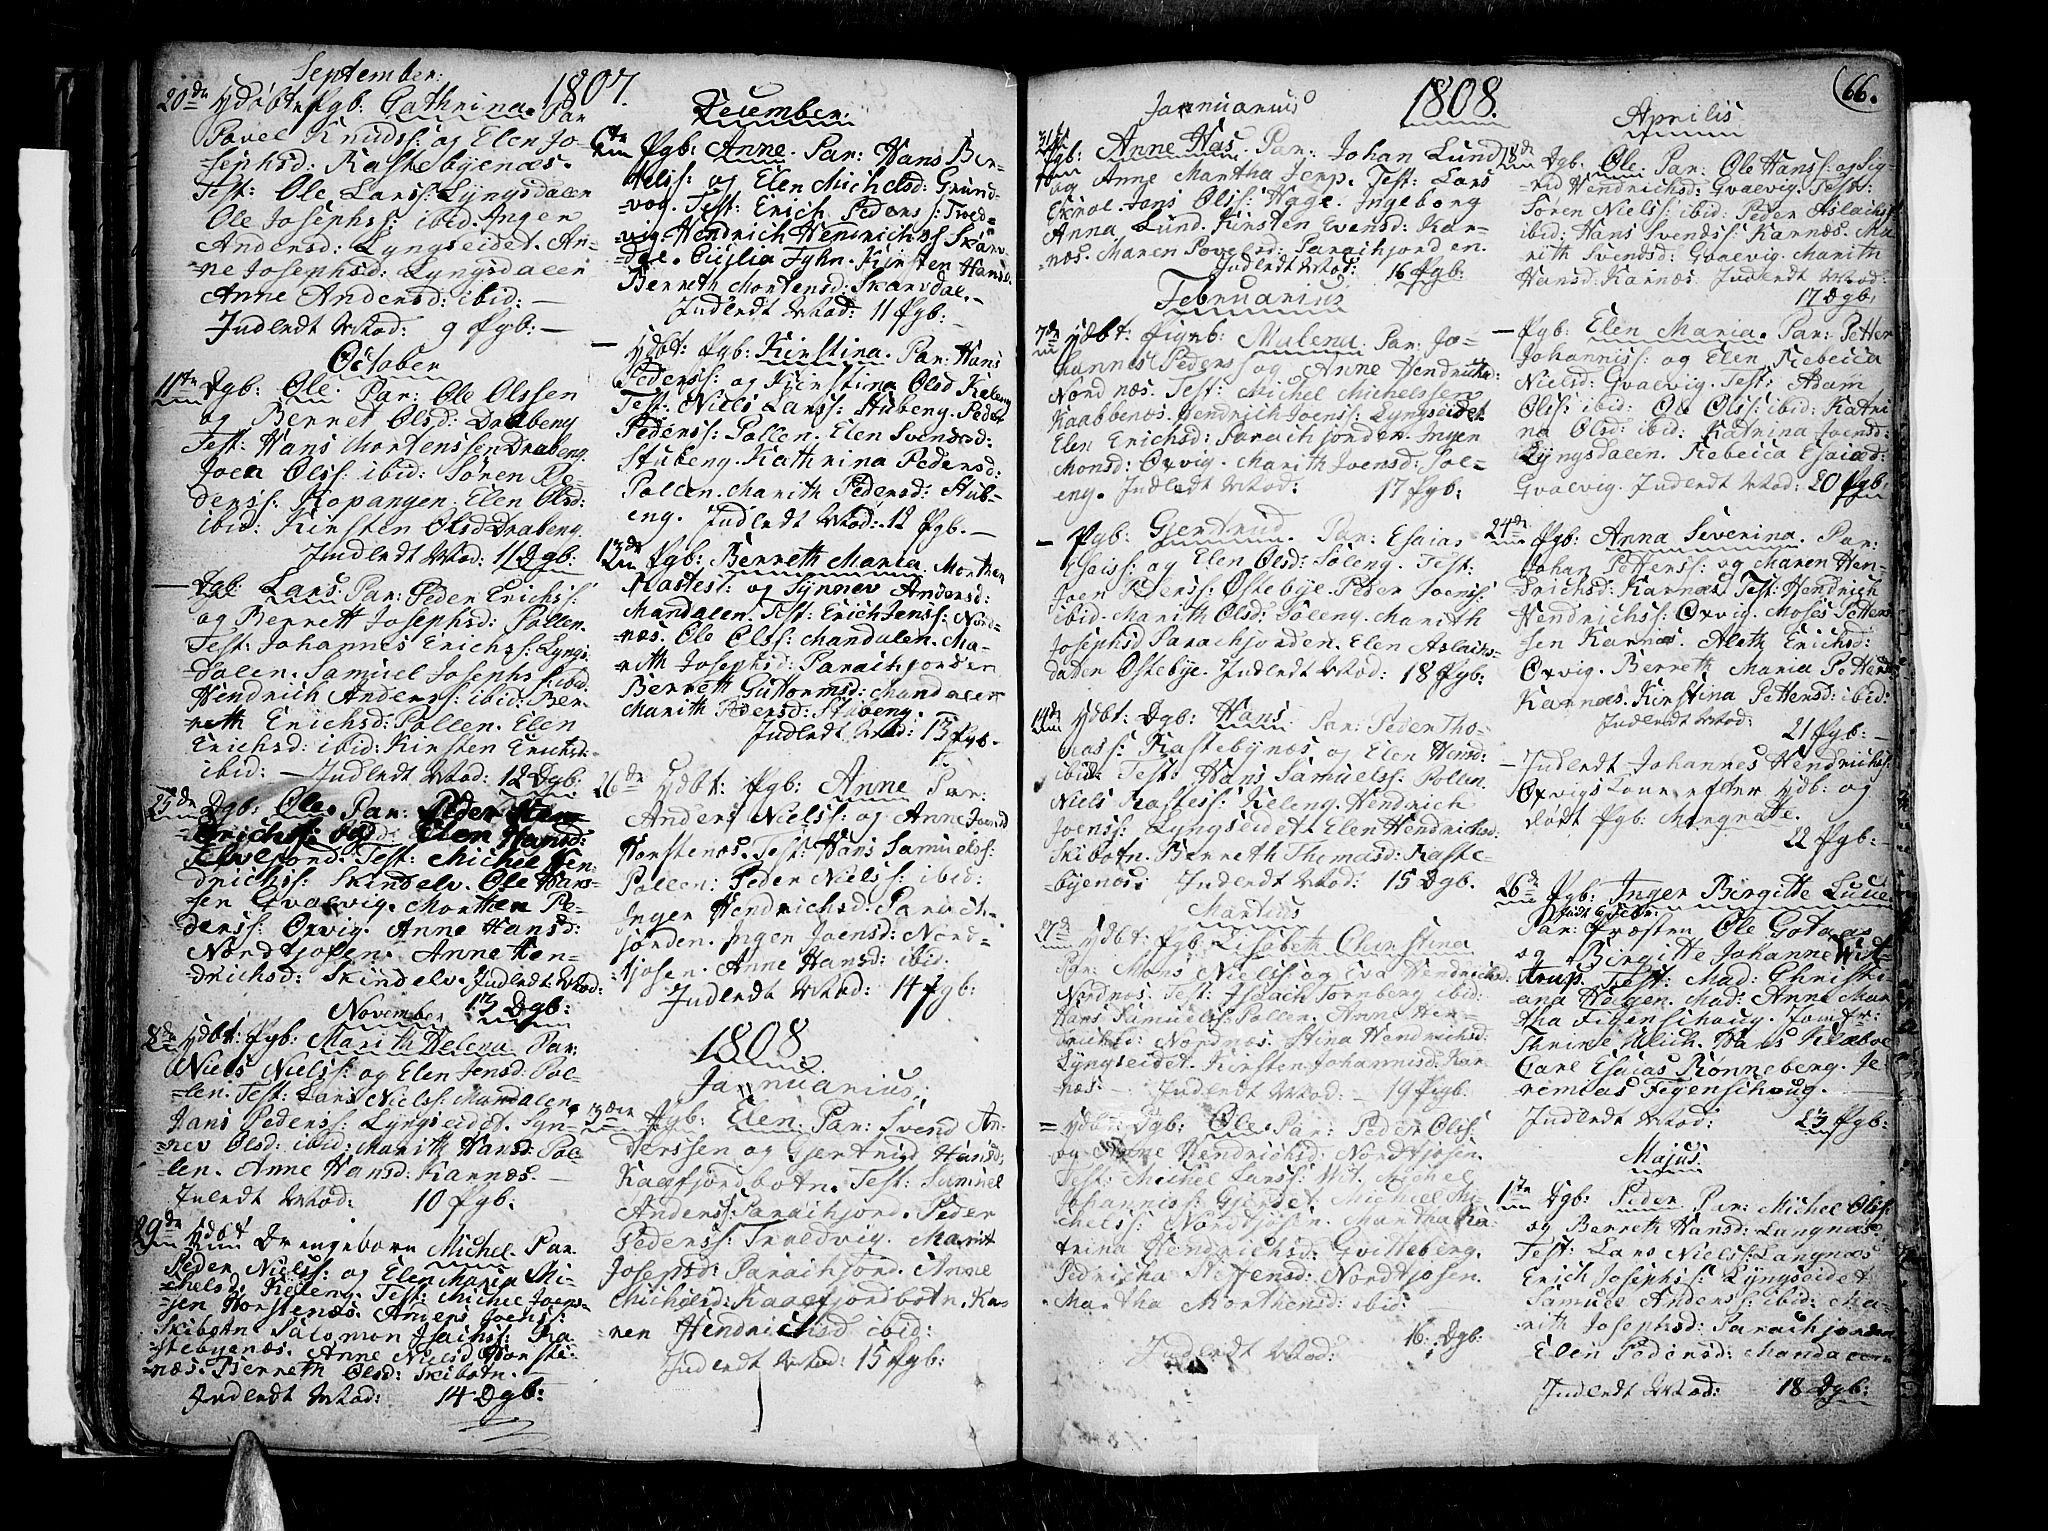 September:
1807.
20de ydøbt Pgb: Cathrina. Par
Povel Knudss: og Elen Jo-
=sephsd: Rastebyenæs.
Test: Ole Larss: Lyngsdalen
Ole Josephss: ibid. Inger
Andersd: Lyngseidet. An-
=ne Josephsd: Lyngsdalen
Anne Andersd: ibid: —
Indledt Mod: 9 Pgb: —
October
11te Dgb: Ole. Par: Ole Olssen
og Berret Olsd: Drabeng
Test: Hans Mortenssen Drabeng.
Joen Olss: ibid: Søren Pe-
derss: Kopangen. Elen Olsd:
ibid: Kirsten Olsd Drabeng.
Indledt Mod: 11 Dgb:
— Dgb: Lars. Par: Peder Erichss:
og Berrett Josephsd: Pollen.
Test: Johannes Erichss: Lyngs
dalen. Samuel Josephs: ibid.
Hendrich Anderss: ibid: Ber-
reth Erichsd: Pollen. Elen
Erichsd: ibid: Kirsten Erichsd:
ibid: — Indledt Mod: 12 Dgb:
Dgb: Ole. Par: Peder Hen
drichss: og Elen Hansd:
Elvejord. Test: Michel Hen
drichss: Skindelv. Ole Hans-
sen Qvalvig. Morthen Pe-
derss: Oxvig. Anne Hansd:
Nordtjosen. Anne Hen-
drichsd: Skindelv. Indledt Mod:
13 Dgb:
November
8de ydbt: Pgb: Marith Helena Par:
Niels Nielss: og Elen Jensd: Pol-
len. Test: Lars Nielss: Mandalen.
Hans Pederss: Lyngseidet. Syn-
=nev Olsd: ibid: Marith Hansd: Pol-
len. Anne Hansd: Karnæs. —
Inledt Mod: 10 Pgb:
29de ydbt Drengebarn Michel. Par.
Peder Nielss: og Elen Maria Mi-
chelsd: Keleng. Test: Michel Joens-
sen Horstenæs. Anders Joenss:
Skibotn Salomon Isachss: Ra
stebyenæs. Anne Nielsd Horste-
næs. Berreth Olsd: Skibotn. —
Indledt Mod: 14 Dgb:
December:
6te Pgb: Anne. Par: Hans Ber-
thelss: og Elen Michelsd: Grund-
vog. Test: Erich Pederss: Troed-
vig. Hendrich Henrichss Skarv
dal. Cicilia Fyhn. Kirsten Hansd.
Berreth Mortensd: Skarvdal. —
Indledt Mod: 11 Pgb: —
— ydbt: Pgb: Kirstina. Par: Hans
Pederss: og Kjerstina Olsd Keleng
Test: Niels Larss: Stubeng. Peder
Pederss: Pollen. Elen Svensd:
Stubeng. Kathrina Pedersd:
Pollen. Marith Pedersd: Stub-
eng. Indledt Mod: 12 Pgb. —
13de Pgb: Berreth Maria. Morthen
Rastess: og Synnev Andersd:
Mandalen. Test: Erich Jenss: Nord-
næs. Ole Olss: Mandalen. Ma-
rith Josephsd: Parachjorden
Berreth Guttormsd: Mandalen
Marith Pedersd: Stubeng.
Indledt Mod: 13 Pgb.
26de ydbt: Pgb: Anne Par:
Anders Nielss: og Anne Joensd
Horstenæs. Test: Hans Samuelss:
Pollen: Peder Nielss: ibid:
Inger Hendrichsd: Parach-
jorden. Inger Joensd: Nord-
tjosen. Anne Hansd: ibid.
Indledt Mod: 14 Pgb:
1808.
Januarius.
3die Pgb: Elen. Par: Svend An-
derssen og Gjertrud Hansd:
Kaafjordbotn. Test: Samuel
Anderss: Parachjord. Peder
Pederss: Troldvig. Marit
Josephsd: Parachjord. Anne
Michelsd: Kaafjordbotn. Ka-
ren Hendrichsd ibid:
Indledt Mod: 15 Pgb:
Januarius
1808.
66.
31te Pgb: Anne Has. Par: Johan Lund
og Anne Martha Jerp. Test: Lars
Jens Olss: Hage. Ingeborg
Anna Lund. Kirsten Evensd: Kar-
næs. Maren Povelsd: Parachjorden.
Indledt Mod: 16 Pgb:
Februarius
7de ydbt: Pignb: Malena. Par: Jo-
hannes Peders og Anne Hendrichsd:
Nordnæs. Test: Michel Michelssen
Kaabbenæs. Hendrich Joenss: Lyngseidet
Elen Erichsd: Parachjorden. Inger
Monsd: Oxvig. Marith Joensd: Sol-
eng. Indledt Mod: 17 Pgb:
— Pgb: Gjertrud Par: Esaias
Esaiss: og Elen Olsd: Soleng. Test:
Joen Pederss: Østebye. Peder Joenss
ibid. Marith Olsd: Soleng. Marith
Josephsd Parachjorden. Elen Aslachs-
daten Østebye. Indledt Mod: 18 Pgb:
14de ydbt: Dgb: Hans. Par: Peder Tho-
mass: Rastebynæs og Elen Hensd:
ibid: Test: Hans Samuelss: Pollen.
Niels Rastess: Keleng. Hendrich
Joenss: Lyngseidet. Elen Hendrichsd:
Skibotn. Berreth Thomasd: Raste-
byenæs. Indledt Mod: 15 Dgb.
Martius
27de ydbt: Pgb. Lisabeth Christina
Par: Mons Nielss og Eva Hendrichsd:
Nordnæs. Test: Isaach Tornberg ibid:
Hans Simuelss: Pollen. Anne Hen-
drichsd: Nordnæs. Stina Hendrichsd:
Lyngseidet. Kirsten Johannisd: Kar
næs — Indledt Mod: — 19 Pigb.
= ydbt: Dgb: Ole. Par: Peder Olss:
og Anne Hendrichsd: Nordtjosen.
Test: Michel Larss: Wit. Michel
Johanniss: Gjerdet. Micheel Mi-
chelss: Nordtjosen. Martha Ka-
trina Hendrichsd: Qvitteberg.
Pedricha Steffensd: Nordtjosen.
Martha Morthensd: ibid: —
Indledt Mod: 16. Dgb:
Aprilis
Dgb: Ole. Par: Ole Hanss: og Sig-
rid Hendrichsd: Qvalvig. Test:
Søren Nielss: ibid: Peder Aslachss.
ibid: Hans Svendss: Karnæs. Ma
rith Svendsd: Qvalvig. Marith
Hansd: Karnæs. Indledt Mod:
17 Dgb:
— Pgb: Elen Maria. Par: Petter
Johanniss: og Elen Rebecca
Nielsd: Qvalvig. Test: Adam
Olss: ibid: Ole Olss: ibid: Katri
na Olsd: ibid: Katrina Joensd:
Lyngsdalen. Rebecca Esaiæd:
Qvalvig. Indledt Mod: 20 Pgb.
24de Pgb: Anna Severina. Par:
Johan Petterss: og Maren Hen-
drichsd: Karnæs. Test: Hendrich
Hendrichss: Oxvig. Moses Petters
sen Karnæs. Aleth Erichsd:
Oxvig. Berreth Maria Pettersd
Karnæs. Kirstina Pettersd: ibid:
Indledt Mod: 21 Pgb: —
— Indledt Johannes Hendrichss:
Oxvigs Kone efter ydb: og
dødt Pgb: Margrethe.
22 Pgb: —
26de Pgb: Inger Birgitte Lucie.
Par: Præsten Ole Gotaas
og Birgitte Johanne Wit-
trup. Test: Mad: Christi-
ana Holgen. Mad: Anne Mar
tha Figenschoug. Jomfr:
Thrine Hich. Hans Klæboe
Carl Esaias Rønneberg. Je
remias Figenschoug. —
Indledt Mod: 23 Pgb:
Majus
1ste Dgb: Peder Par: Michel Olss:
og Berreth Hansd: Langnæs.
Test: Lars Nielss: Langnæs
Erich Josephss: Lyngseidet
Samuel Anderss: ibid: Ma-
rith Josephsd: Parachjorden
Elen Pedersd: Mandalen
Indledt Mod: 18 Dgb: